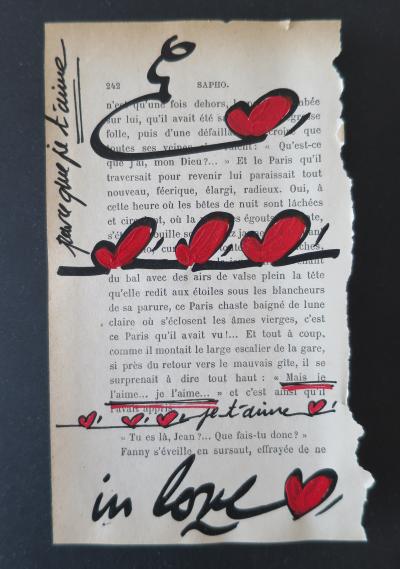 parce que je t'aime
242 SAPHO.
n'est qu'une fois dehors,
sur lui, qu'il avait été
folle, puis d'une
toutes ses : « Qu'est-ce
que j'ai, mon Dieu?... » Et le Paris qu'il
traversait pour revenir lui paraissait tout
nouveau, féerique, élargi, radieux. Oui, à
cette heure où les bêtes de nuit sont lâchées
et où la égouts
du bal avec des airs de valse plein la tête
qu'elle redit aux étoiles sous les blancheurs
de sa parure, ce Paris chaste baigné de lune
claire où s'éclosent les âmes vierges, c'est
ce Paris qu'il avait vu!... Et tout à coup,
comme il montait le large escalier de la gare,
si près du retour vers le mauvais gîte, il se
surprenait à dire tout haut : « Mais je
l'aime... je l'aime... » et c'est ainsi qu'il
l'avait appris.
je t'aime
« Tu es là, Jean?... Que fais-tu donc? »
Fanny s'éveille en sursaut, effrayée de ne
in love